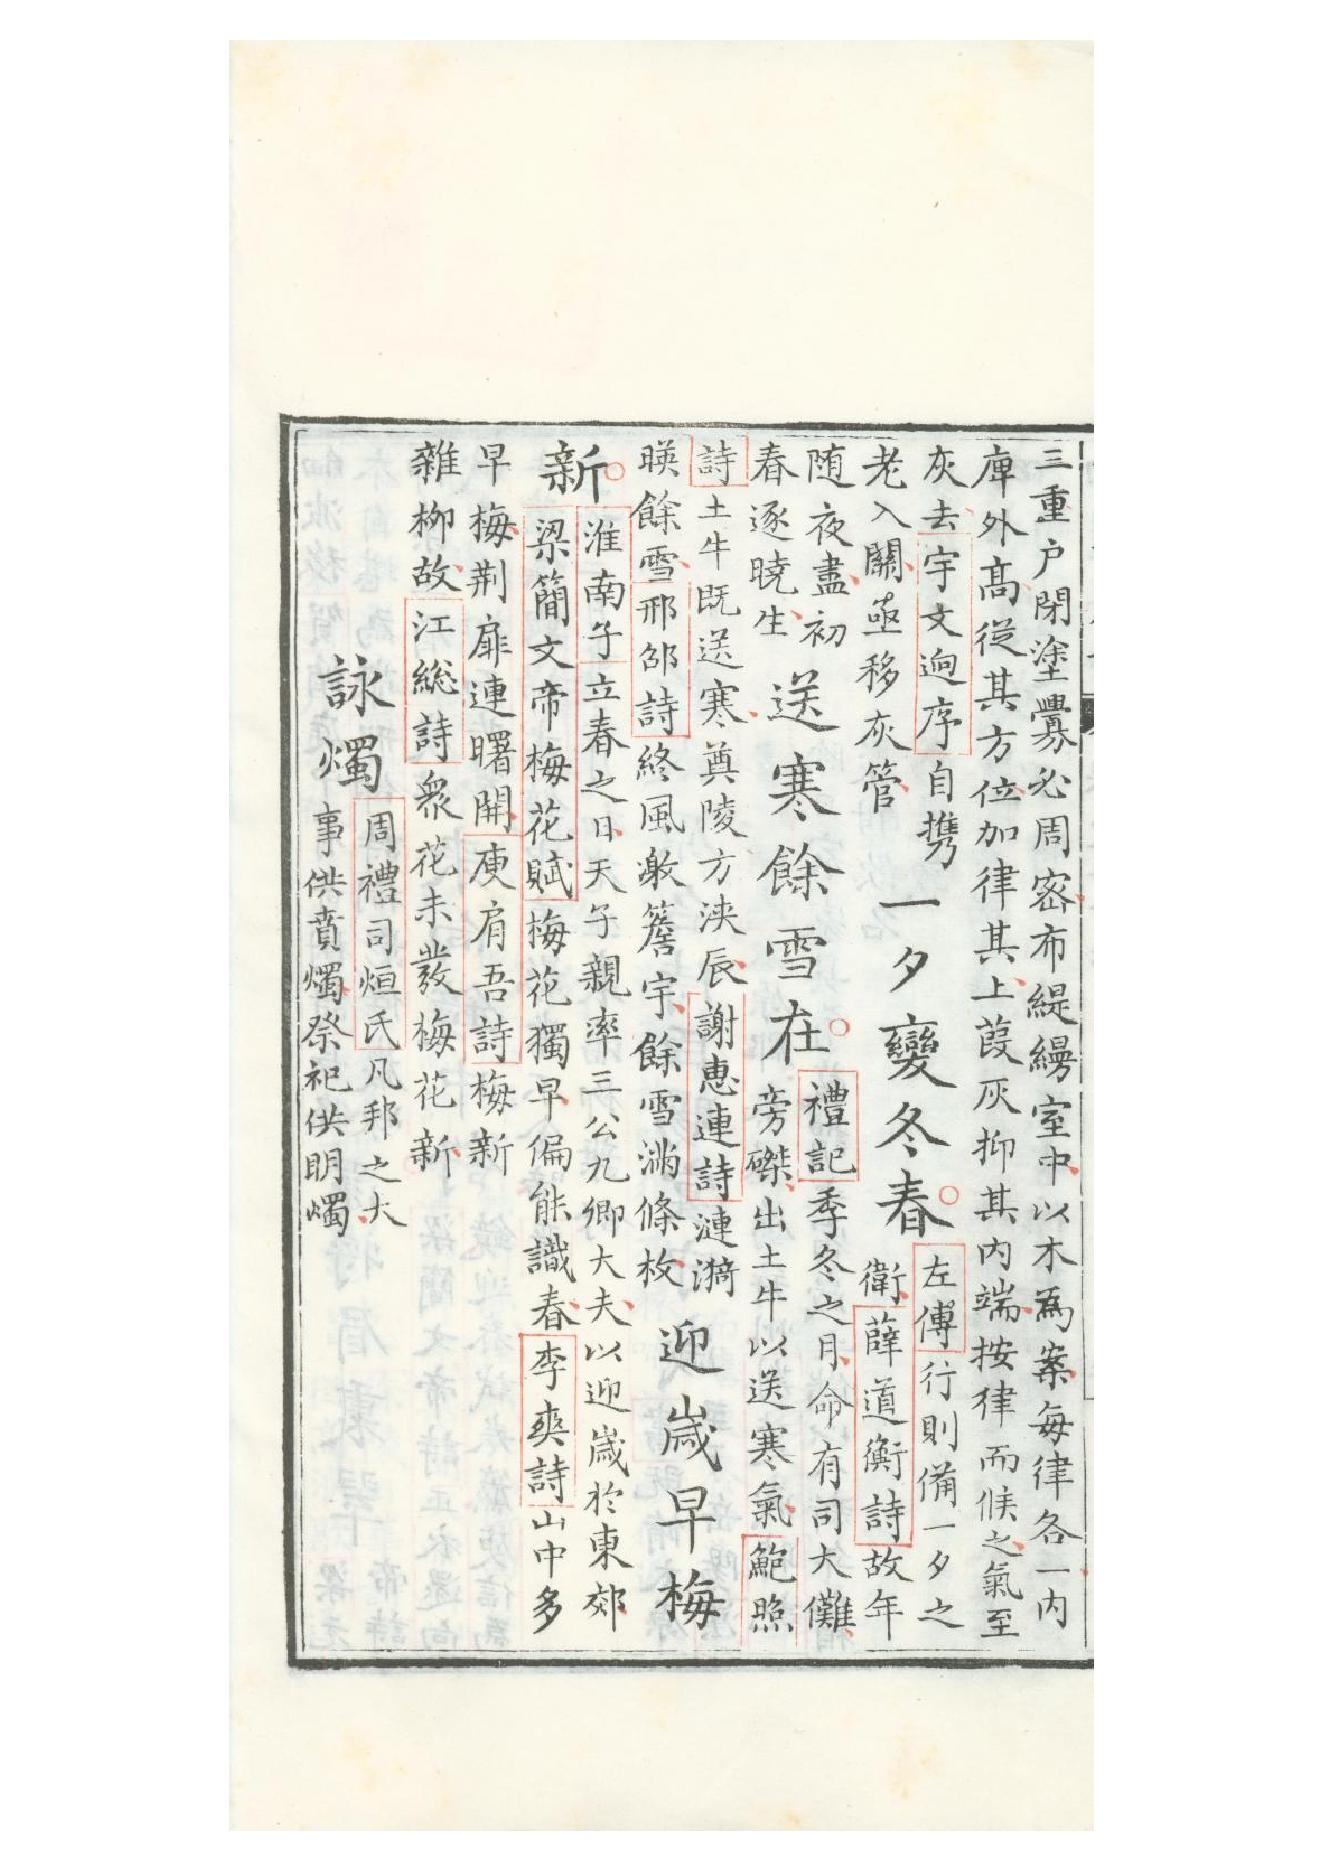 三重户閉塗釁必周密布緹縵室中以木爲案每律各一内
庳外高從其方位加律其上葭灰抑其内端按律而候之氣至
灰去宇文逈序自携
老入關亟移灰管
一夕變冬春
左傳行則備一夕之
衛薛道衡詩故年
随夜盡初
春逐曉生
送寒餘雪在
禮記季冬之月命有司大儺
旁磔出土牛以送寒氣鮑照
詩土牛既送寒蓂陵方浹辰謝惠連詩漣漪
暎餘雪邢邵詩終風激簷宇餘雪滿條枚
迎嵗早梅
新
淮南子立春之日天子親率三公九卿大夫以迎嵗於東郊
梁簡文帝梅花賦梅花獨早偏能識春李爽詩山中多
早梅荆扉連曙開庾肩吾詩梅新
雜柳故江総詩衆花未發梅花新
詠燭
周禮司烜氏凡邦之大
事供蕡燭祭祀供明燭